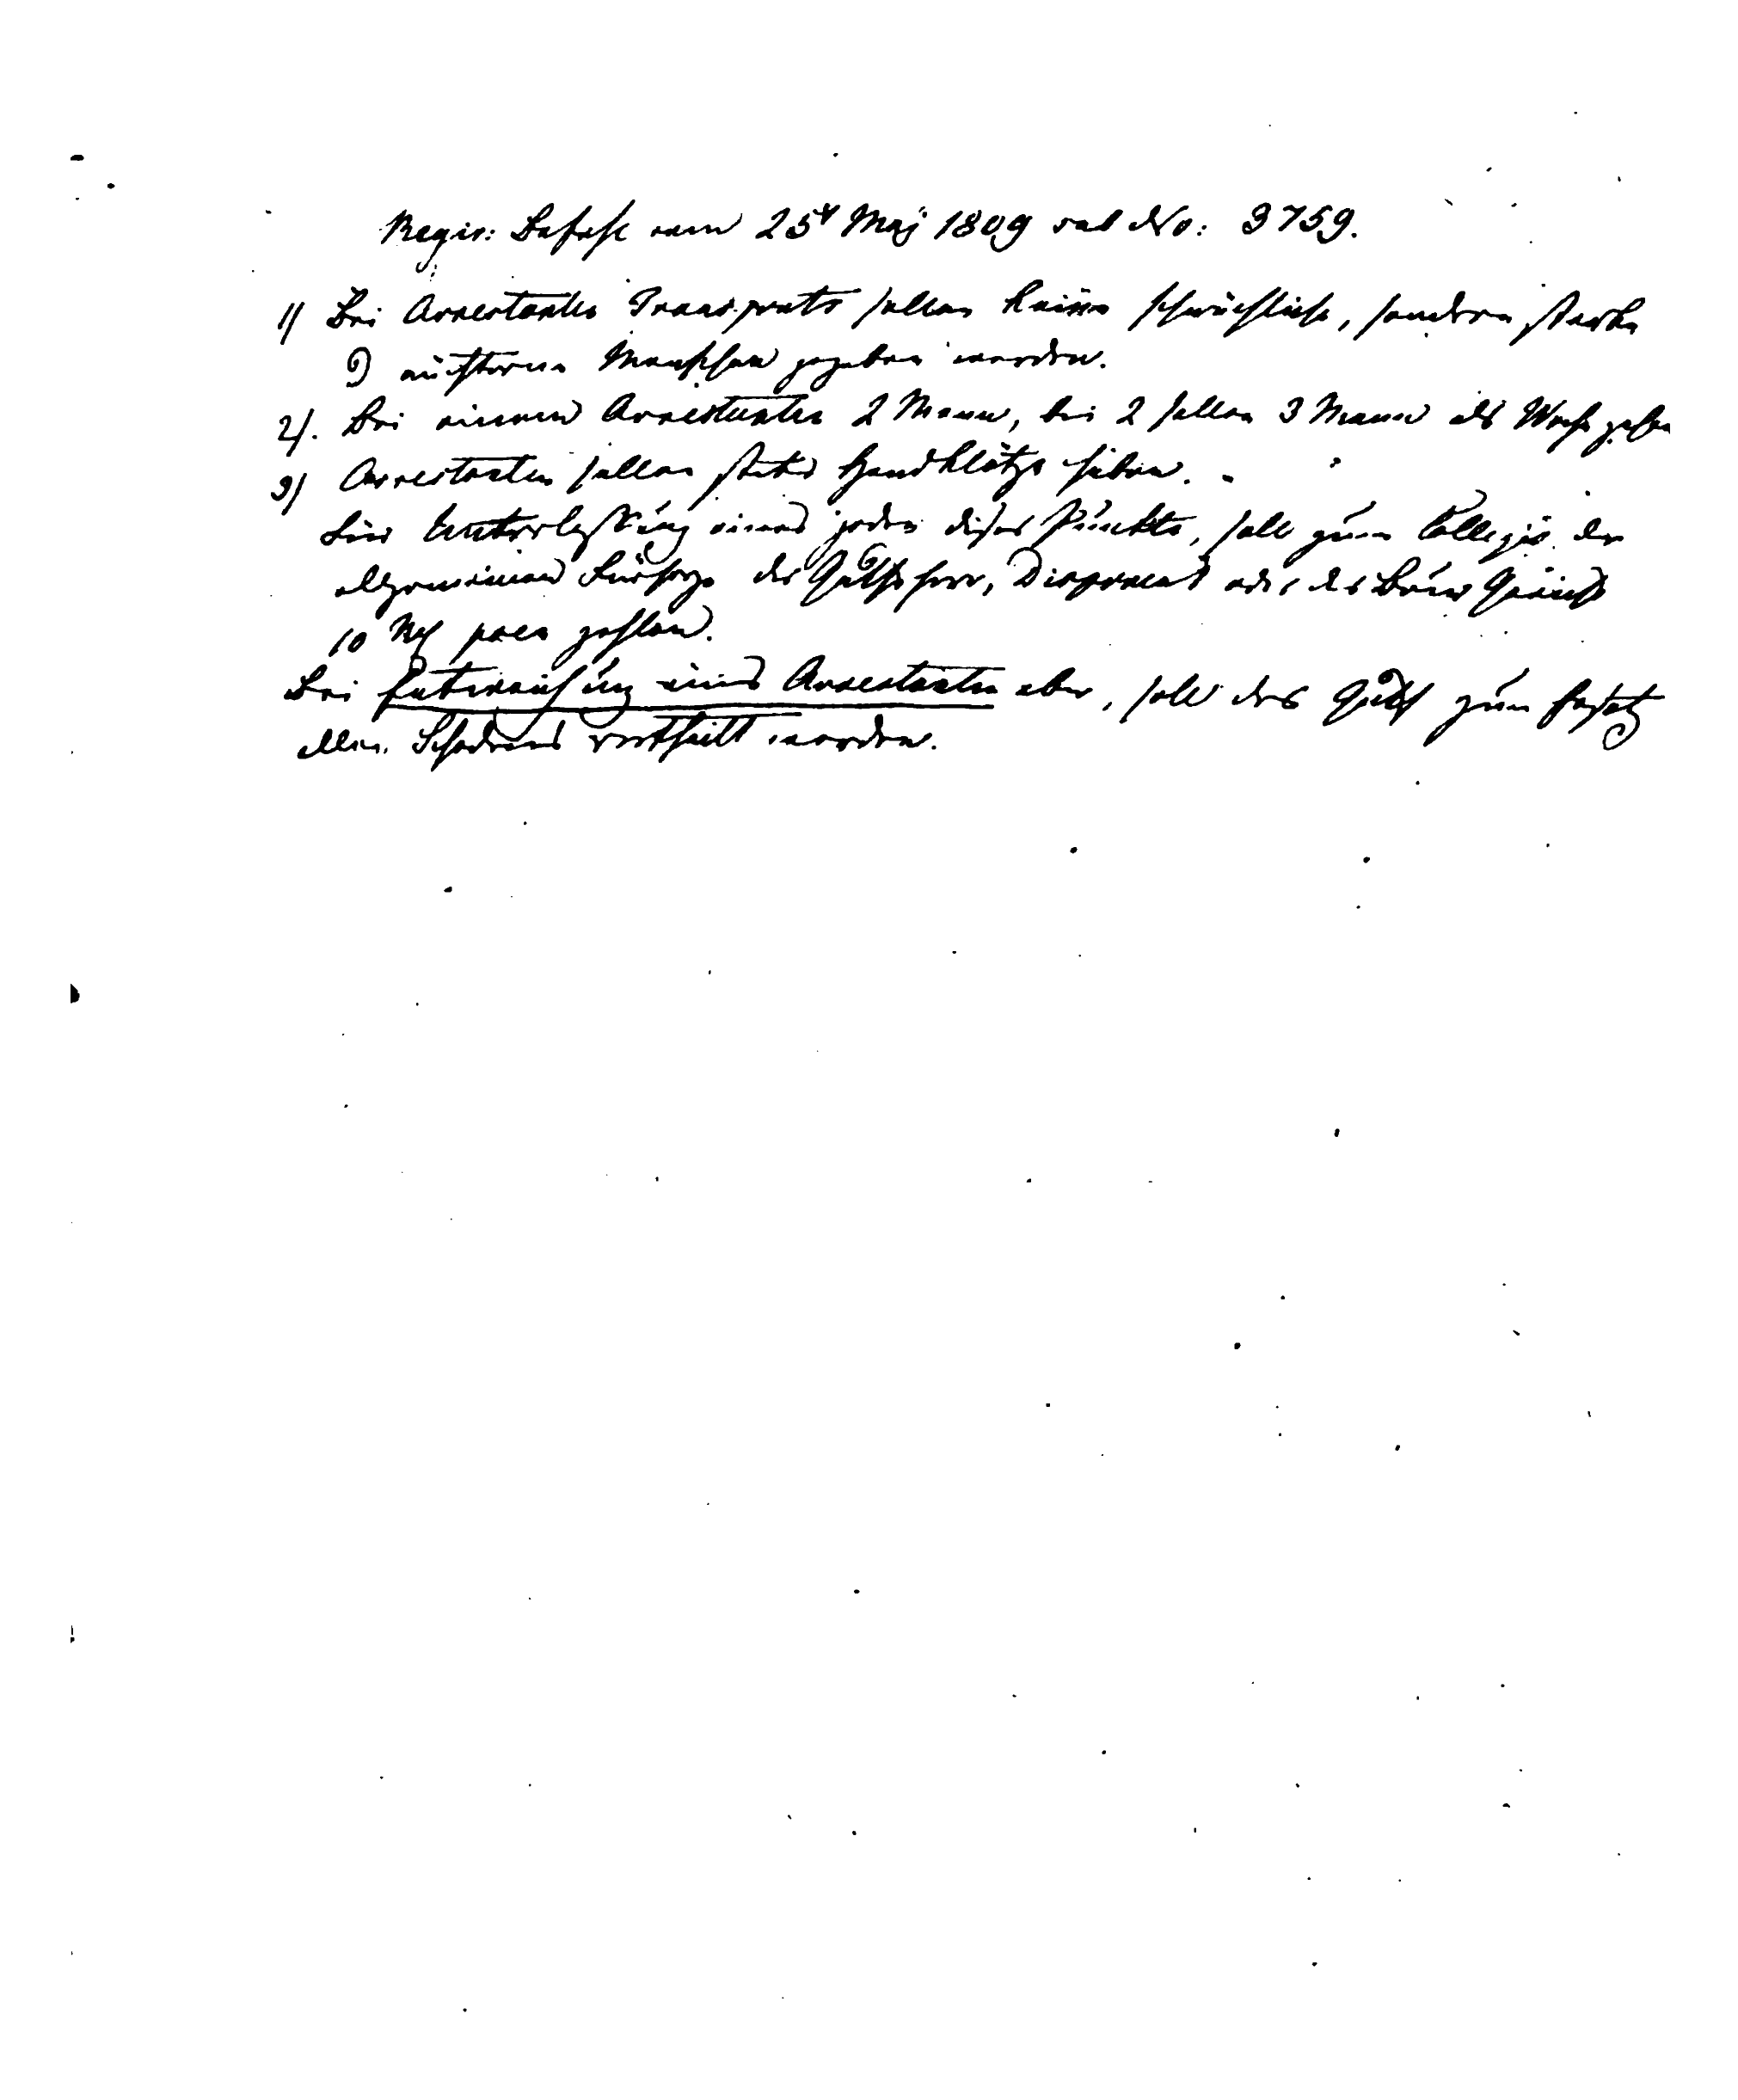 Regir: Befehl vom 25t Maj 1809 sub No: 3759.
1) Bei Arrestanten Transports sollen keine schwächliche, sondern starke
& nüchterne Menschen gegeben werden.
2). Bei einem Arrestanten 2 Mann, bei 2 sollen 3 Mann als Wache gehen
3) Arrestanten sollen stets Handklötze haben.
Für Unterlassung eines jeden dieser Punkte, soll zum Collegio der
allgemeinen Fürsorge der Gutsherr, Disponent oder das Bauer Gericht
10 Rbl poen zahlen.
Bei Entweichung eines Arrestanten aber, soll das Guth zum Ersatz
allen Schadens vertheilt werden.